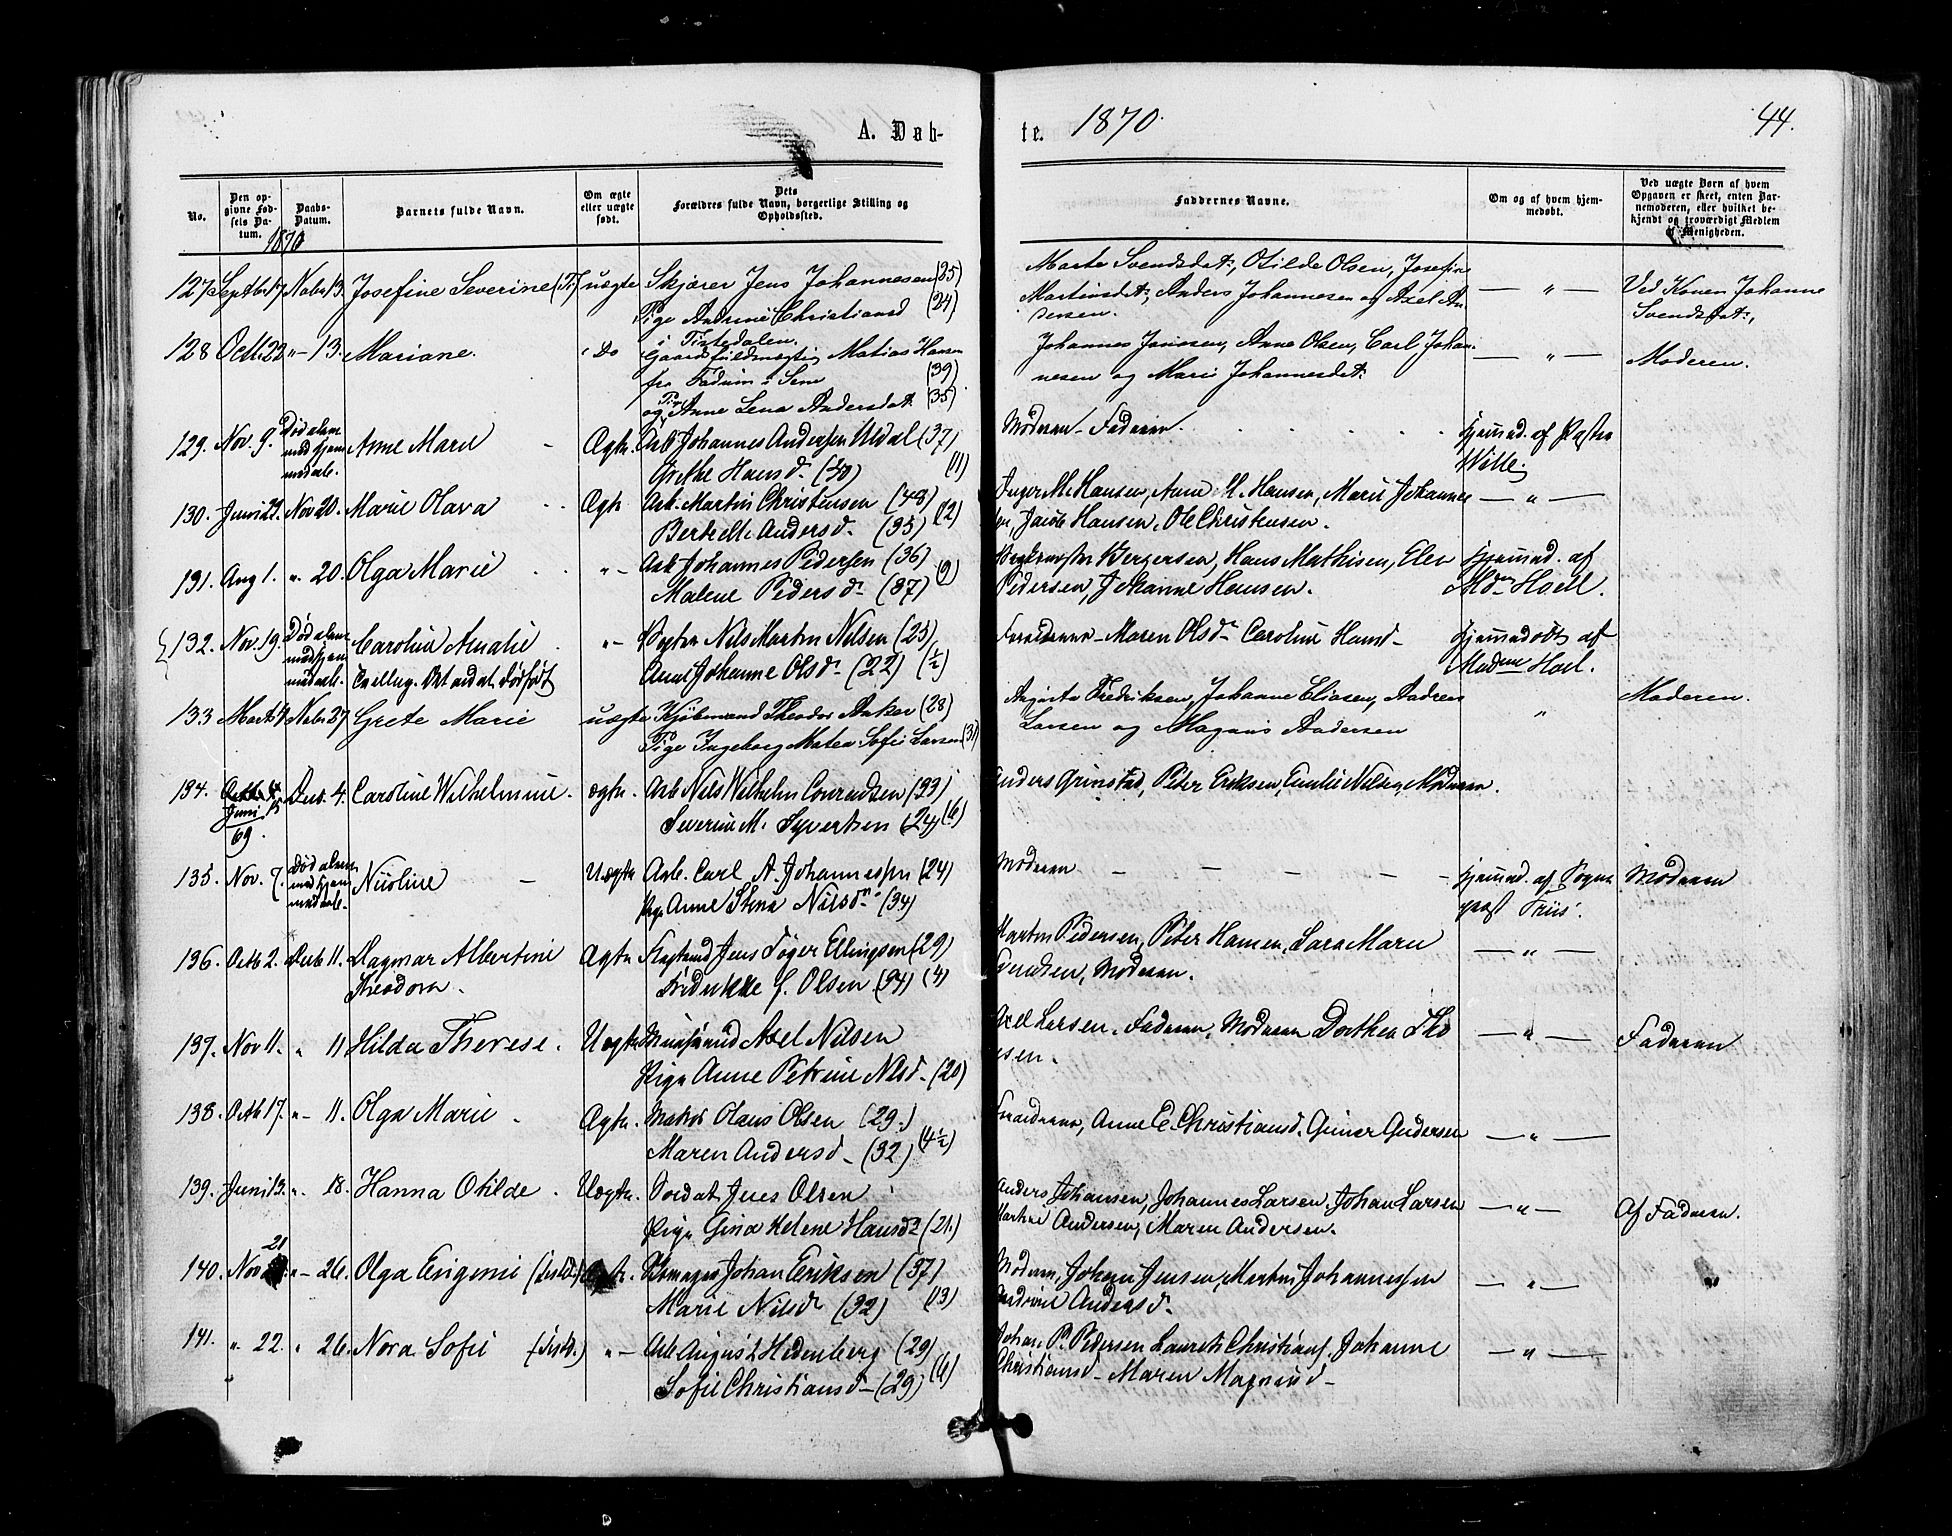 A. Døb-
te. 1870.
44.
No.
Den op-
givne Fød-
sels Da-
tum.
Daabs-
Datum.
Barnets fulde Navn.
Om ægte
eller uægte
født.
Dets
Forældres fulde Navn, borgerlige Stilling og
Opholdssted.
Faddernes Navne.
Om og af hvem hjem-
medøbt.
Ved uægte Børn af hvem
Opgaven er skeet, enten Bar-
nemoderen, eller hvilket be-
kjendt og troværdigt Medlem
af Menigheden.
1870
127 Septbr 17. Novbr 13. Josefine Severine (Ti) uægte Skjærer Jens Johannesen (25)
Pige Andrine Christiansd (24)
i Tistedalen.
Marte Svendsdat:, Otilde Olsen, Josefine
Martinsdat:, Anders Johannesen og Axel An-
dersen.
— " —
Ved Konen Johanne
Svendsdat:,
128 Octb. 22. " - 13. Mariane. Do Gaardsfuldmægtig Matias Hansen
fra i Sem (39)
og Pige Anne Lena Andersdat: (35)
Johannes Jonssen, Anne Olsen, Carl Johan-
nesen og Mari Johannesdat:
— " —
Moderen.
129. Nov. 9. Død alene
med hjem-
medaab. Anne Marie - Ægte. Arb. Johannes Andersen Uldal (37)
Grethe Hansd. (30) (11)
Moderen - Faderen.
hjemmd. af Pastor
Wille.
130. Juni 21. Nov 20. Marie Olava Ægte Arb. Martin Christensen (48)
Berthe Andersd. (35) (12)
Inger M. Hansen, Anne M. Hansen, Marie Johannes
sen, Jacob Hansen, Ole Christensen.
— " —
131. Aug 1. " 20. Olga Marie " - Arb. Johannes Pedersen (36)
Malene Pedersd. (37) (9)
Bergersen, Hans Mathisen, Elen
Pedersen, Johanne Hansen.
hjemmd. af
Mdm Hoel.
132. Nov. 19. Død alene
med hjem-
medaab. Caroline Amalie " - Vogter Nils Martin Nilsen (25)
Tvilling. Det andet dødfødt Anne Johanne Olsd. (22) (½)
Forældrene - Maren Olsd. Caroline Hansd -
hjemmedøbt af
Madme Hoel.
133 Marts 4. Novbr 27. Grete Marie uægte Kjøbmand Theodor Anker (28)
Pige Ingeborg Matea Sofie Larsen (31)
Augusta Fredriksen, Johanne Eliasen, Andreas
Larsen og Magnus Andersen
"
Moderen.
134. Juni 15
69. Decb. 4. Caroline Wilhelmine. ægte. Arb Nils Wilhelm Conradsen (33)
Severine M. Syvertsen (24) (6)
Anders Grimstad, Peter Eriksen, Emilie Nilsen, Moderen.
135. Nov. 7. Død alene
med hjem-
medaab. Nicoline - Uægte Arb. Carl A. Johannessen (24)
Pige Anne Stina Nilsdn. (34)
Moderen
hjemmd. af Sogne
præst Friis.
Moderen
136. Octb 2. Decb 11. Dagmar Albertine
Theodora. Ægte Jens Tøger Ellingsen (29)
Fredrikke G. Olsen (34) (4)
Martin Pedersen, Peter Hansen, Lara Marie
Knudsen, Moderen.
— " —
137. Nov 11. " 11 Hilda Therese. Uægte Axel Nilsen
Pige Anne Petrine Nilsd. (20)
Axel Larsen, Faderen, Moderen Dorthea Tho
sen.
— " —
Faderen
138. Octb 17. " - 11. Olga Marie Ægte. Matros Olaus Olsen (29.)
Maren Andersd - (32) (4½)
Forældrene, Anne E. Christiansd. Gunar Andersen
— " —
139. Juni 13. " - 18. Hanna Otilde. Uægte. Soldat Jens Olsen
Pige Gina Helene Hansd. (21)
Anders Johansen, Johannes Larsen, Johan Larsen
Martine Andersen, Maren Andersen.
— " —
Af Faderen.
140. Nov 21 " - 26. Olga Eugenie (Tistdl.) Ægte. Johan Eriksen (37)
Marie Nilsd (32) (13)
Moderen, Johan Jensen, Martin Johannessen
Andrine Andersd.
— " —
"
141. " 22. " 26. Nora Sofie (Tistd.) " - Arb August Hedenberg (29)
Sofie Christiansd - (29) (6)
Johan P. Pedersen Laurits Christians. Johanne
Christiansd - Maren Magnusd -
— " —